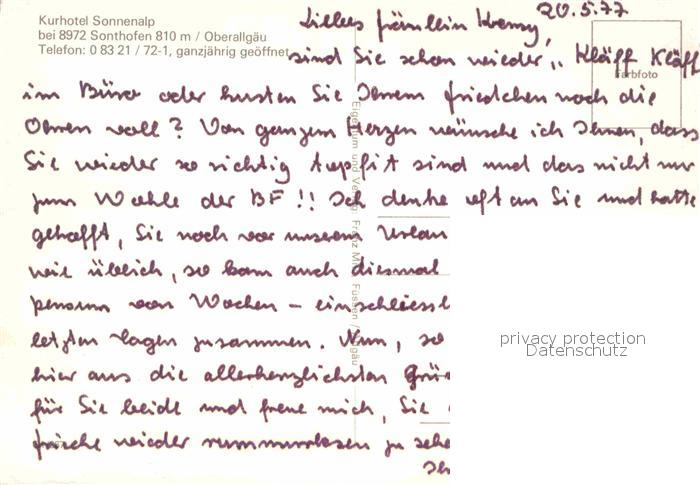 Kurhotel Sonnenalp
bei 8972 Sonthofen 810 m / Oberallgäu
Telefon: 0 83 21 / 72-1, ganzjährig geöffnet
20.5.77
Liebes Fräulein
sind Sie schon wieder „ Kläff Kläff
Farbfoto
im Büro oder husten Sie Ihrem friedchen noch die
Ohren voll? Von ganzem Herzen wünsche ich Ihnen, dass
Sie wieder so richtig topfit sind und das nicht nur
zum Wohle der BF!! Ich denke oft an Sie und hatte
gehofft, Sie noch vor unserem Urlau
wie üblich, so kam auch diesmal
pensum von Wochen – einschliessl
letzten Tagen zusammen. Nun, so
hier aus die allerherzlichsten Grü
für Sie beide und freue mich, Sie
frische wieder zu sehe
Ih
Eigentum und Verlag: Franz Füssen / Allgäu
privacy protection
Datenschutz